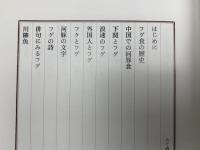 はじめに
フグ食の歴史
中国での河豚食
下関とフグ
浪速のフグ
外国人とフグ
フクとフグ
河豚の文字
フグの詩
俳句にみるフグ
川柳魚